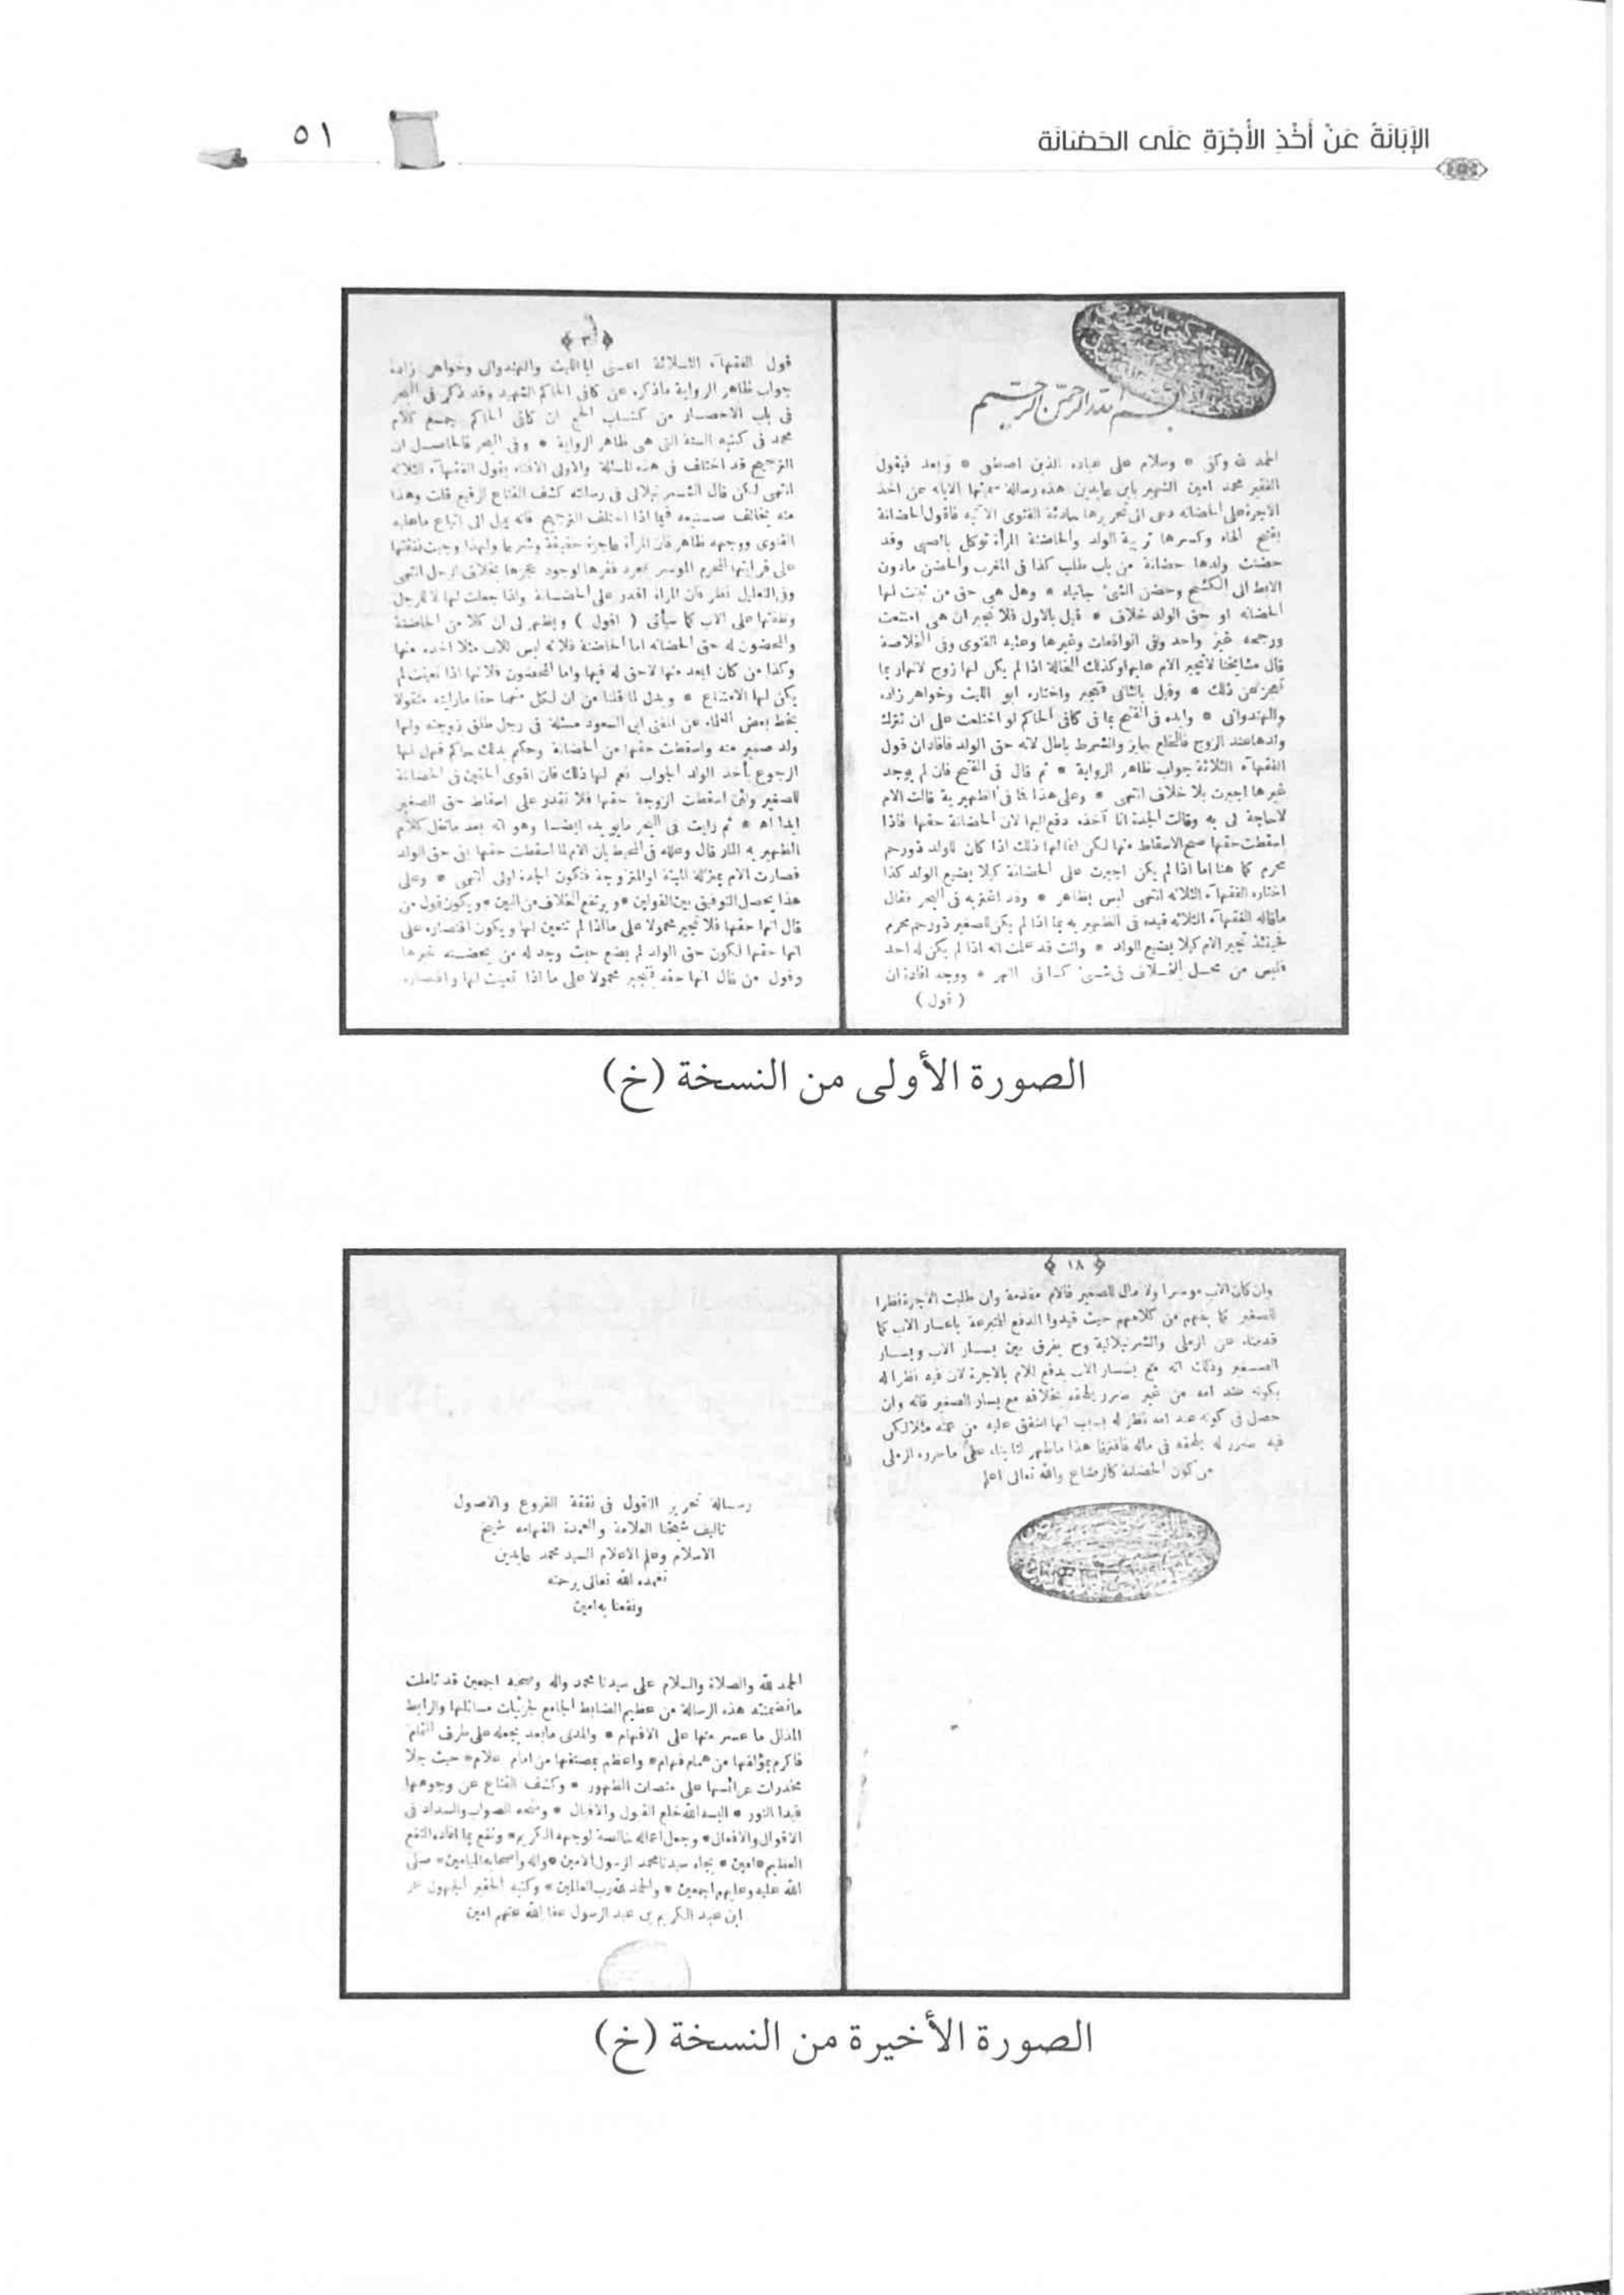 الإبَانَةُ عَنْ أَخْذِ الأُجْرَةِ عَلَى الحَضَانَة
٥١
بسم الله الرحمن الرحيم
الحمد لله وكفى * وسلام على عباده الذين اصطفى * وبعد فيقول
الفقير محمد امين الشهير بابن عابدين هذه رسالة سميتها الابانه عن اخذ
الاجرة على الحضانه دعى الى تحريرها حادثة الفتوى الآتيه فاقول الحضانة
بفتح الحاء وكسرها تربية الولد والحاضنة المرأة توكل بالصبي وقد
حضنت ولدها حضانة من باب طلب كذا فى المغرب والحضن مادون
الابط الى الكشح وحضن الشئ جانباه * وهل هى حق من ثبتت لها
الحضانه او حق الولد خلاف * قيل بالاول فلا تجبر ان هى امتنعت
ورجحه غير واحد وفى الواقعات وغيرها وعليه الفتوى وفى الخلاصة
قال مشايخنا لاتجبر الام عليها وكذلك الخالة اذا لم يكن لها زوج لانها ربما
تعجز عن ذلك * وقيل بالثانى فتجبر واختاره ابو الليث وخواهر زاده
والهندوانى * وايده فى الفتح بما فى كافى الحاكم لو اختلعت على ان تترك
ولدها عند الزوج فالخلع جائز والشرط باطل لانه حق الولد فافاد ان قول
الفقهاء الثلاثة جواب ظاهر الرواية * ثم قال فى الفتح فان لم يوجد
غيرها اجبرت بلا خلاف انتهى * وعلى هذا فما فى الظهيرية قالت الام
لاحاجة لى به وقالت الجدة انا آخذه دفع اليها لان الحضانة حقها فاذا
اسقطت حقها صح الاسقاط منها لكن انما لها ذلك اذا كان للولد ذورحم
محرم كما هنا اما اذا لم يكن اجبرت على الحضانة كيلا يضيع الولد كذا
اختاره الفقهاء الثلاثه انتهى ليس بظاهر * وقد اغتر به فى البحر فقال
ماقاله الفقهاء الثلاثه قيده فى الظهيريه بما اذا لم يكن للصغير ذورحم محرم
فحينئذ تجبر الام كيلا يضيع الولد * وانت قد علمت انه اذا لم يكن له احد
فليس من محل الخلاف فى شئ كذا فى النهر * ووجه افادة ان
( قول )
﴿ ٣ ﴾
قول الفقهاء الثلاثة اعنى ابا الليث والهندوانى وخواهر زاده
جواب ظاهر الرواية ماذكره عن كافى الحاكم الشهيد وقد ذكر فى البحر
فى باب الاحصار من كتاب الحج ان كافى الحاكم جمع كلام
محمد فى كتبه الستة التى هى ظاهر الرواية * وفى البحر فالحاصل ان
الترجيح قد اختلف فى هذه المسئلة والاولى الافتاء بقول الفقهاء الثلاثه
انتهى لكن قال الشرنبلالى فى رسالته كشف القناع الرفيع قلت وهذا
منه يخالف صنيعه فيما اذا اختلف الترجيح فانه يميل الى اتباع ماعليه
الفتوى ووجهه ظاهر فان المرأة عاجزة حقيقة وشرعا ولهذا وجبت نفقتها
على قرابتها المحرم الموسر بمجرد فقرها لوجود عجزها بخلاف الرجل انتهى
وفى التعليل نظر فان المرأة اقدر على الحضانة ولذا جعلت لها لا للرجل
ونفقتها على الاب كما سيأتى ( اقول ) ويظهر لى ان كلا من الحاضنة
والمحضون له حق الحضانه اما الحاضنة فلانه ليس للاب مثلا اخذه منها
وكذا من كان ابعد منها لاحق له فيها واما المحضون فلانها اذا تعينت لم
يكن لها الامتناع * ويدل لما قلنا من ان لكل منهما حقا مارايته منقولا
بخط بعض العلماء عن المفتى ابى السعود مسئلة فى رجل طلق زوجته ولها
ولد صغير منه واسقطت حقها من الحضانة وحكم بذلك حاكم فهل لها
الرجوع بأخذ الولد الجواب نعم لها ذلك فان اقوى الحقين فى الحضانة
للصغير ولئن اسقطت الزوجة حقها فلا تقدر على اسقاط حق الصغير
ابدا اه * ثم رايت فى البحر مايويده ايضا وهو انه بعد مانقل كلام
الظهيريه المار قال وعلله فى المحيط بان الام لما اسقطت حقها بقى حق الولد
فصارت الام بمنزلة الميتة او المتزوجة فتكون الجدة اولى انتهى * وعلى
هذا يحصل التوفيق بين القولين * ويرتفع الخلاف من البين * ويكون قول من
قال انها حقها فلا تجبر محمولا على مااذا لم تتعين لها ويكون اقتصاره على
انها حقها لكون حق الولد لم يضع حيث وجد له من يحضنه غيرها
وقول من قال انها حقه فتجبر محمولا على ما اذا تعينت لها واقتصاره
الصورة الأولى من النسخة (خ)
﴿ ١٨ ﴾
وان كان الاب موسرا ولا مال للصغير فالام مقدمة وان طلبت الاجرة نظرا
للصغير كما يفهم من كلامهم حيث قيدوا الدفع للمتبرعة باعسار الاب كما
قدمناه عن الرملى والشرنبلالية وح يفرق بين يسار الاب ويسار
الصغير وذلك انه مع يسار الاب يدفع للام بالاجرة لان فيه نظرا له
بكونه عند امه من غير ضرر يلحقه بخلافه مع يسار الصغير فانه وان
حصل فى كونه عند امه نظر له بسبب انها اشفق عليه من عمته مثلا لكن
فيه ضرر له يلحقه فى ماله فافترقا هذا ماظهر لنا بناء على ماحرره الرملى
من كون الحضانة كالرضاع والله تعالى اعلم
رسالة تحرير النقول فى نفقة الفروع والاصول
تاليف شيخنا العلامة والعمدة الفهامه شيخ
الاسلام وعلم الاعلام السيد محمد عابدين
تغمده الله تعالى برحمته
ونفعنا به امين
الحمد لله والصلاة والسلام على سيدنا محمد واله وصحبه اجمعين قد تاملت
ماتضمنته هذه الرسالة من عظيم الضابط الجامع لجزئيات مسائلها والرابط
المذلل ما عسر منها على الافهام * والمدنى مابعد بجعله على طرف الثمام
فاكرم بمؤلفها من همام فهام * واعظم بمصنفها من امام علام * حيث جلا
مخدرات عرائسها على منصات الظهور * وكشف القناع عن وجوهها
فبدا النور * البسه الله خلع القبول والاقبال * ومنحه الصواب والسداد فى
الاقوال والافعال * وجعل اعماله خالصة لوجهه الكريم * ونفع بما افاده النفع
العظيم * امين * بجاه سيدنا محمد الرسول الامين * واله واصحابه الميامين * صلى
الله عليه وعليهم اجمعين * والحمد لله رب العالمين * وكتبه الحقير الجهول عمر
ابن عبد الكريم بن عبد الرسول عفا الله عنهم امين
الصورة الأخيرة من النسخة (خ)